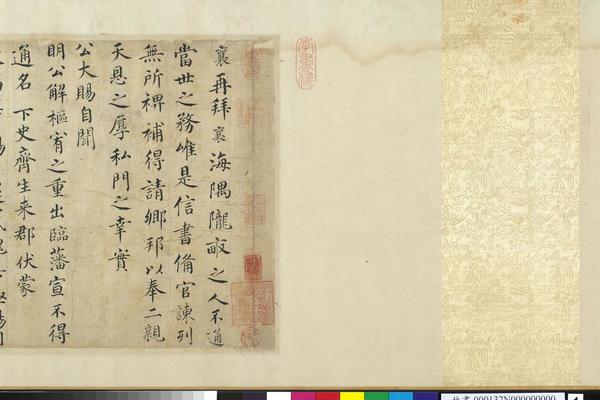 襄再拜襄海隅隴畝之人不通
當世之務唯是信書備官諫列
無所裨補得請鄉邦以奉二親
天恩之厚私門之幸實
公大賜自聞
明公解樞宥之重出臨藩宣不得
通名 下史齊生来郡伏蒙
000132N000000000